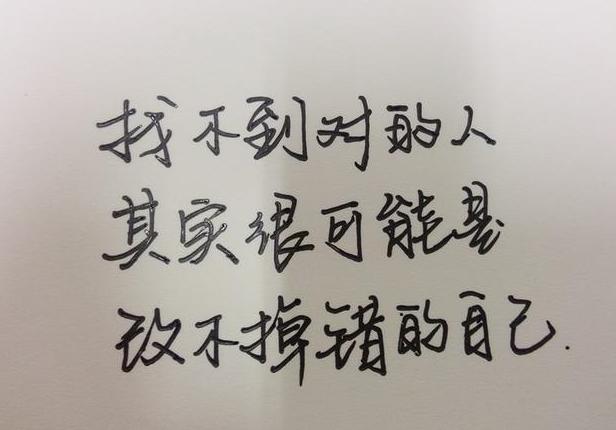 找不到对的人
其实很可能是
改不掉错的自己.